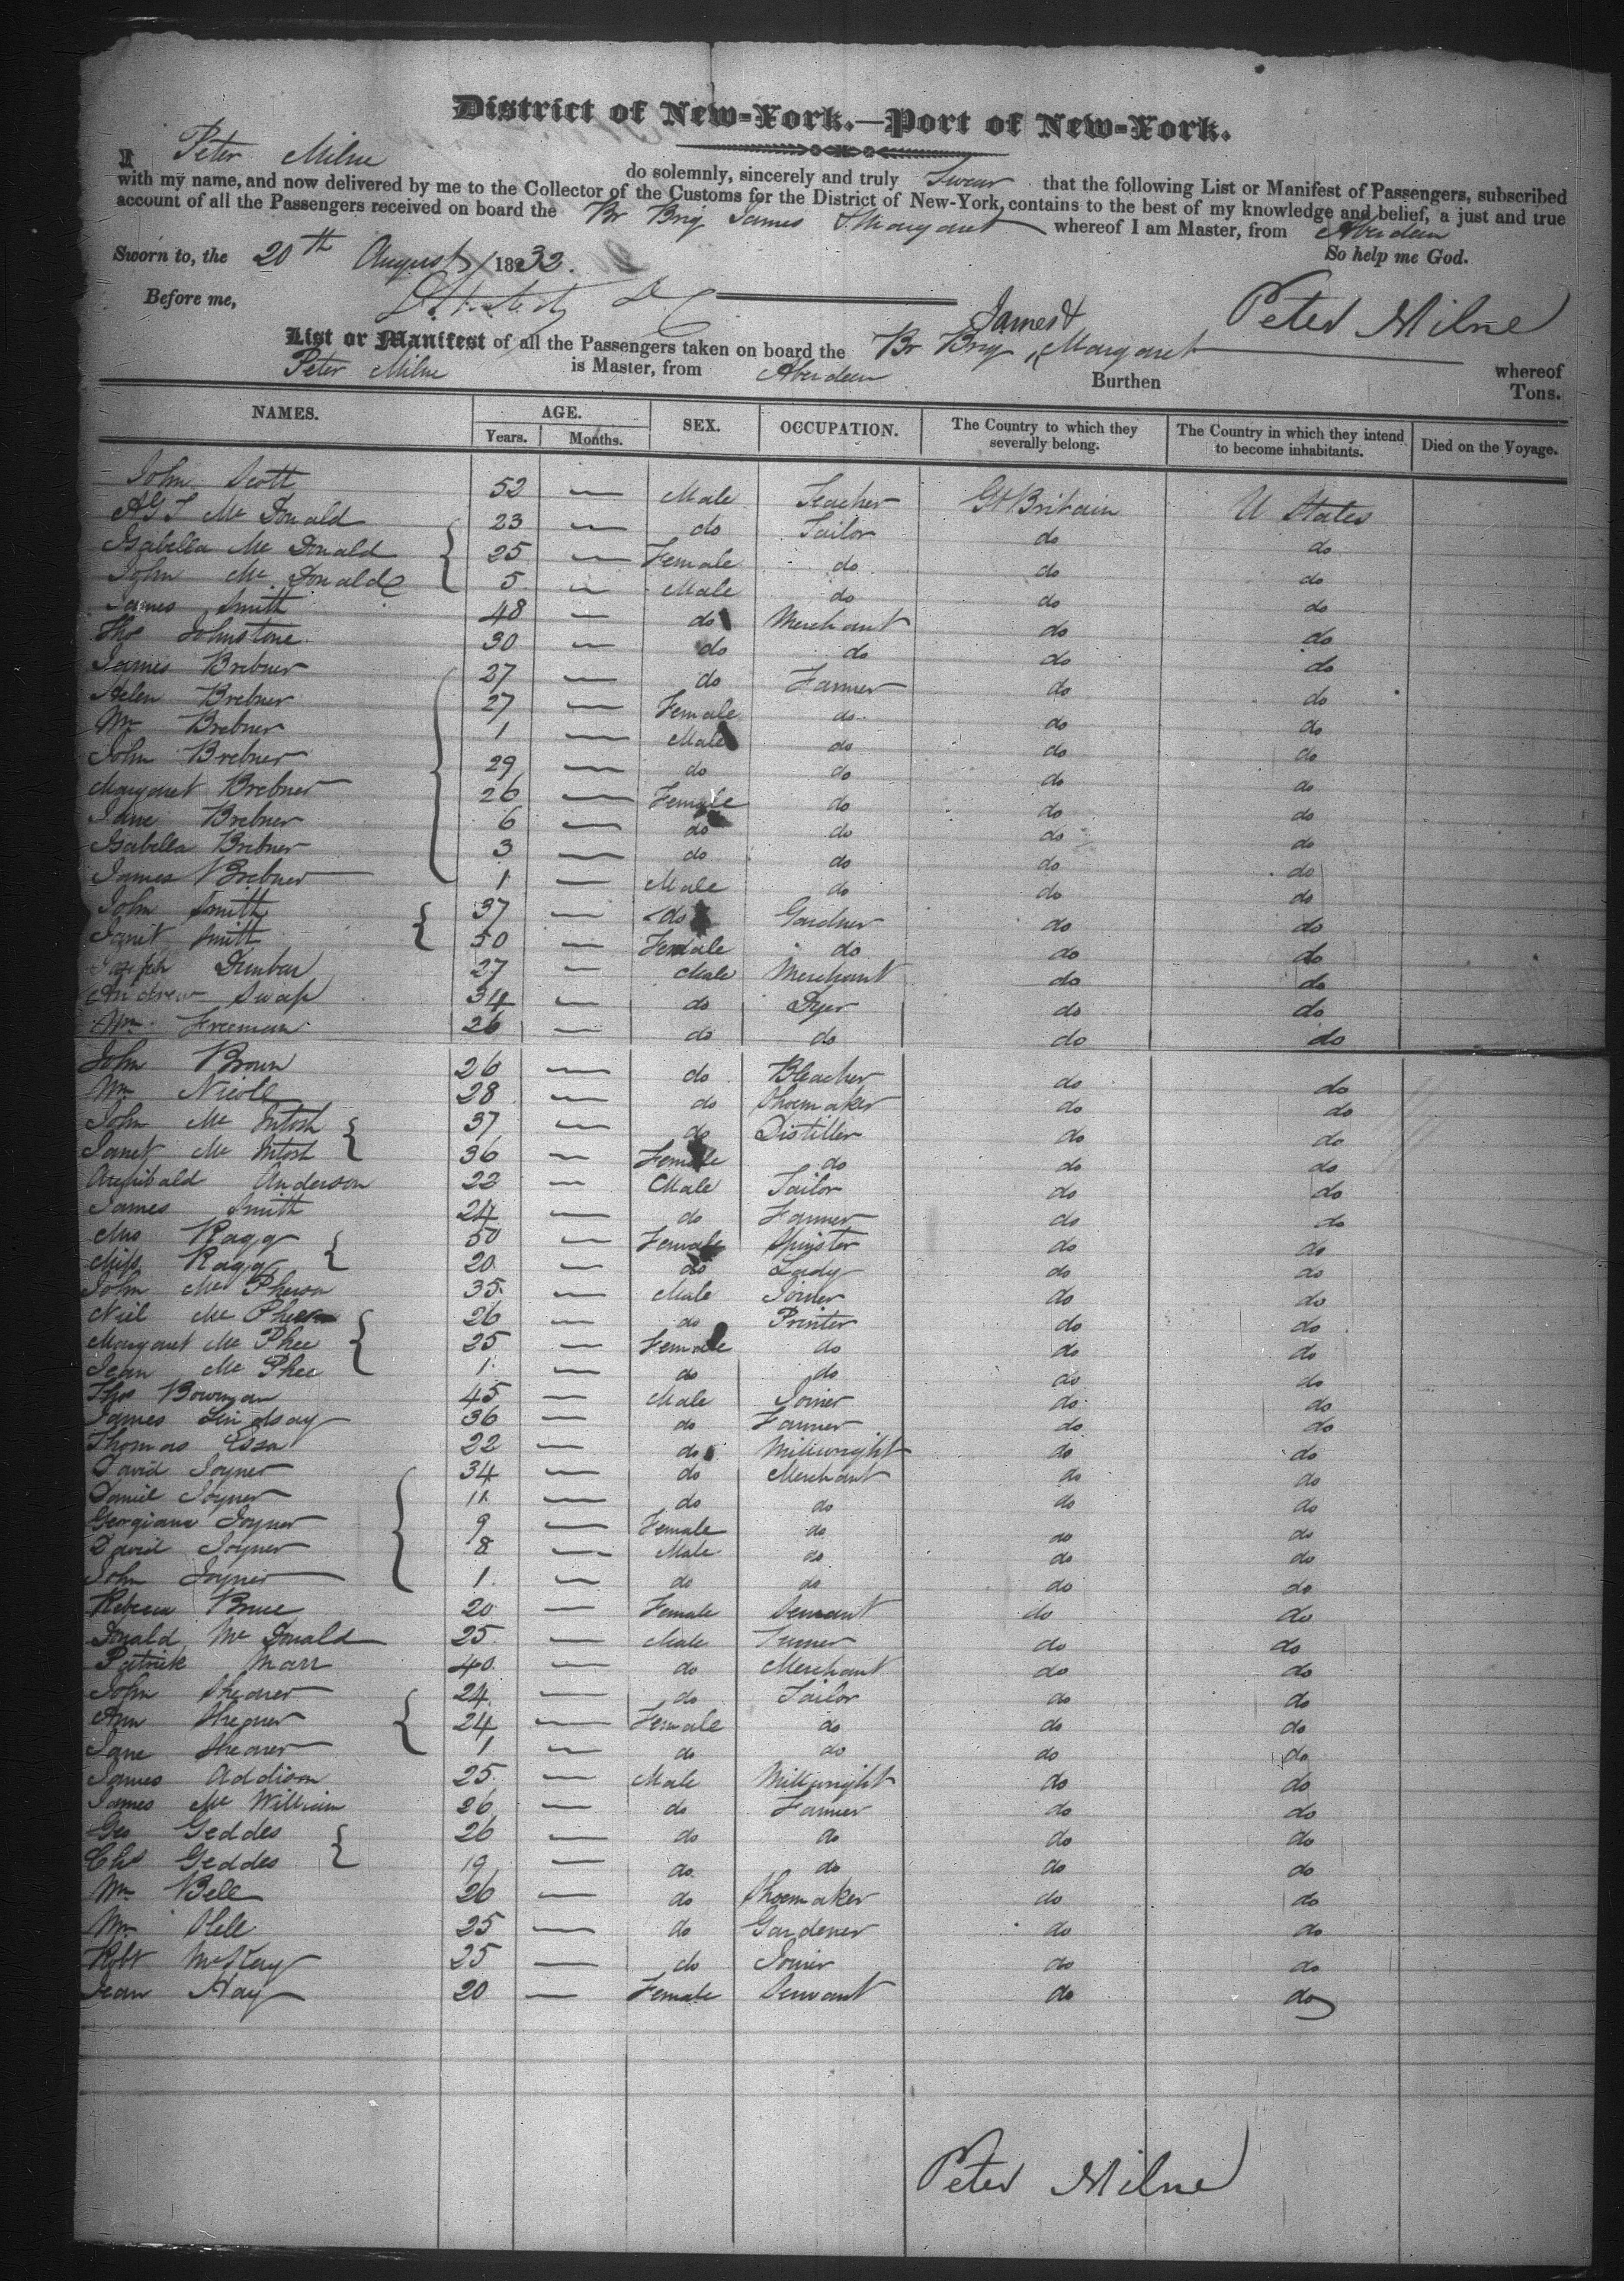 District of New-York.—Port of New-York.
I Peter Milne do solemnly, sincerely and truly Swear that the following List or Manifest of Passengers, subscribed
with my name, and now delivered by me to the Collector of the Customs for the District of New-York, contains to the best of my knowledge and belief, a just and true
account of all the Passengers received on board the Br Brig James & Margaret whereof I am Master, from Aberdeen
Sworn to, the 20th August 1832. So help me God.
Before me, Peter Milne
List or Manifest of all the Passengers taken on board the Br Brig James & Margaret whereof
Peter Milne is Master, from Aberdeen Burthen Tons.
NAMES. AGE. Years. Months. SEX. OCCUPATION. The Country to which they severally belong. The Country in which they intend to become inhabitants. Died on the Voyage.
John Scott 52 — Male Teacher Gt Britain U States
AGT Mc Donald 23 — do Tailor do do
Isabella Mc Donald 25 — Female do do do
John Mc Donald 5 — Male do do do
James Smith 48 — do Merchant do do
Thos Johnstone 30 — do do do do
James Brebner 27 — do Farmer do do
Helen Brebner 27 — Female do do do
Wm Brebner 1 — Male do do do
John Brebner 29 — do do do do
Margaret Brebner 26 — Female do do do
Jane Brebner 6 — do do do do
Isabella Brebner 3 — do do do do
James Brebner 1 — Male do do do
John Smith 37 — do Gardner do do
Janet Smith 50 — Female do do do
Joseph Dunbar 27 — Male Merchant do do
Andrew Swap 34 — do Dyer do do
Wm Freeman 26 — do do do do
John Brown 26 — do Bleacher do do
Wm Nicoll 28 — do Shoemaker do do
John Mc Intosh 37 — do Distiller do do
Janet Mc Intosh 36 — Female do do do
Archibald Anderson 22 — Male Tailor do do
James Smith 24 — do Farmer do do
Mrs Ragg 50 — Female Spinster do do
Miss Ragg 20 — do Lady do do
John Mc Pherson 35 — Male Joiner do do
Niel Mc Phee 26 — do Printer do do
Margaret Mc Phee 25 — Female do do do
Jean Mc Phee 1 — do do do do
Thos Bowman 45 — Male Joiner do do
James Lindsay 36 — do Farmer do do
Thomas 22 — do Millwright do do
David Joyner 34 — do Merchant do do
Daniel Joyner 11 — do do do do
Georgiana Joyner 9 — Female do do do
David Joyner 8 — Male do do do
John Joyner 1 — do do do do
Rebecca Bruce 20 — Female Servant do do
Donald Mc Donald 25 — Male do do
Patrick Marr 40 — do Merchant do do
John Shearer 24 — do Tailor do do
Ann Shearer 24 — Female do do do
Jane Shearer 1 — do do do do
James Addison 25 — Male Millwright do do
James Mc William 26 — do Farmer do do
Geo Geddes 26 — do do do do
Chs Geddes 19 — do do do do
Wm Bell 26 — do Shoemaker do do
Wm 25 — do Gardener do do
Robt McKay 25 — do Joiner do do
Jean Hay 20 — Female Servant do do
Peter Milne